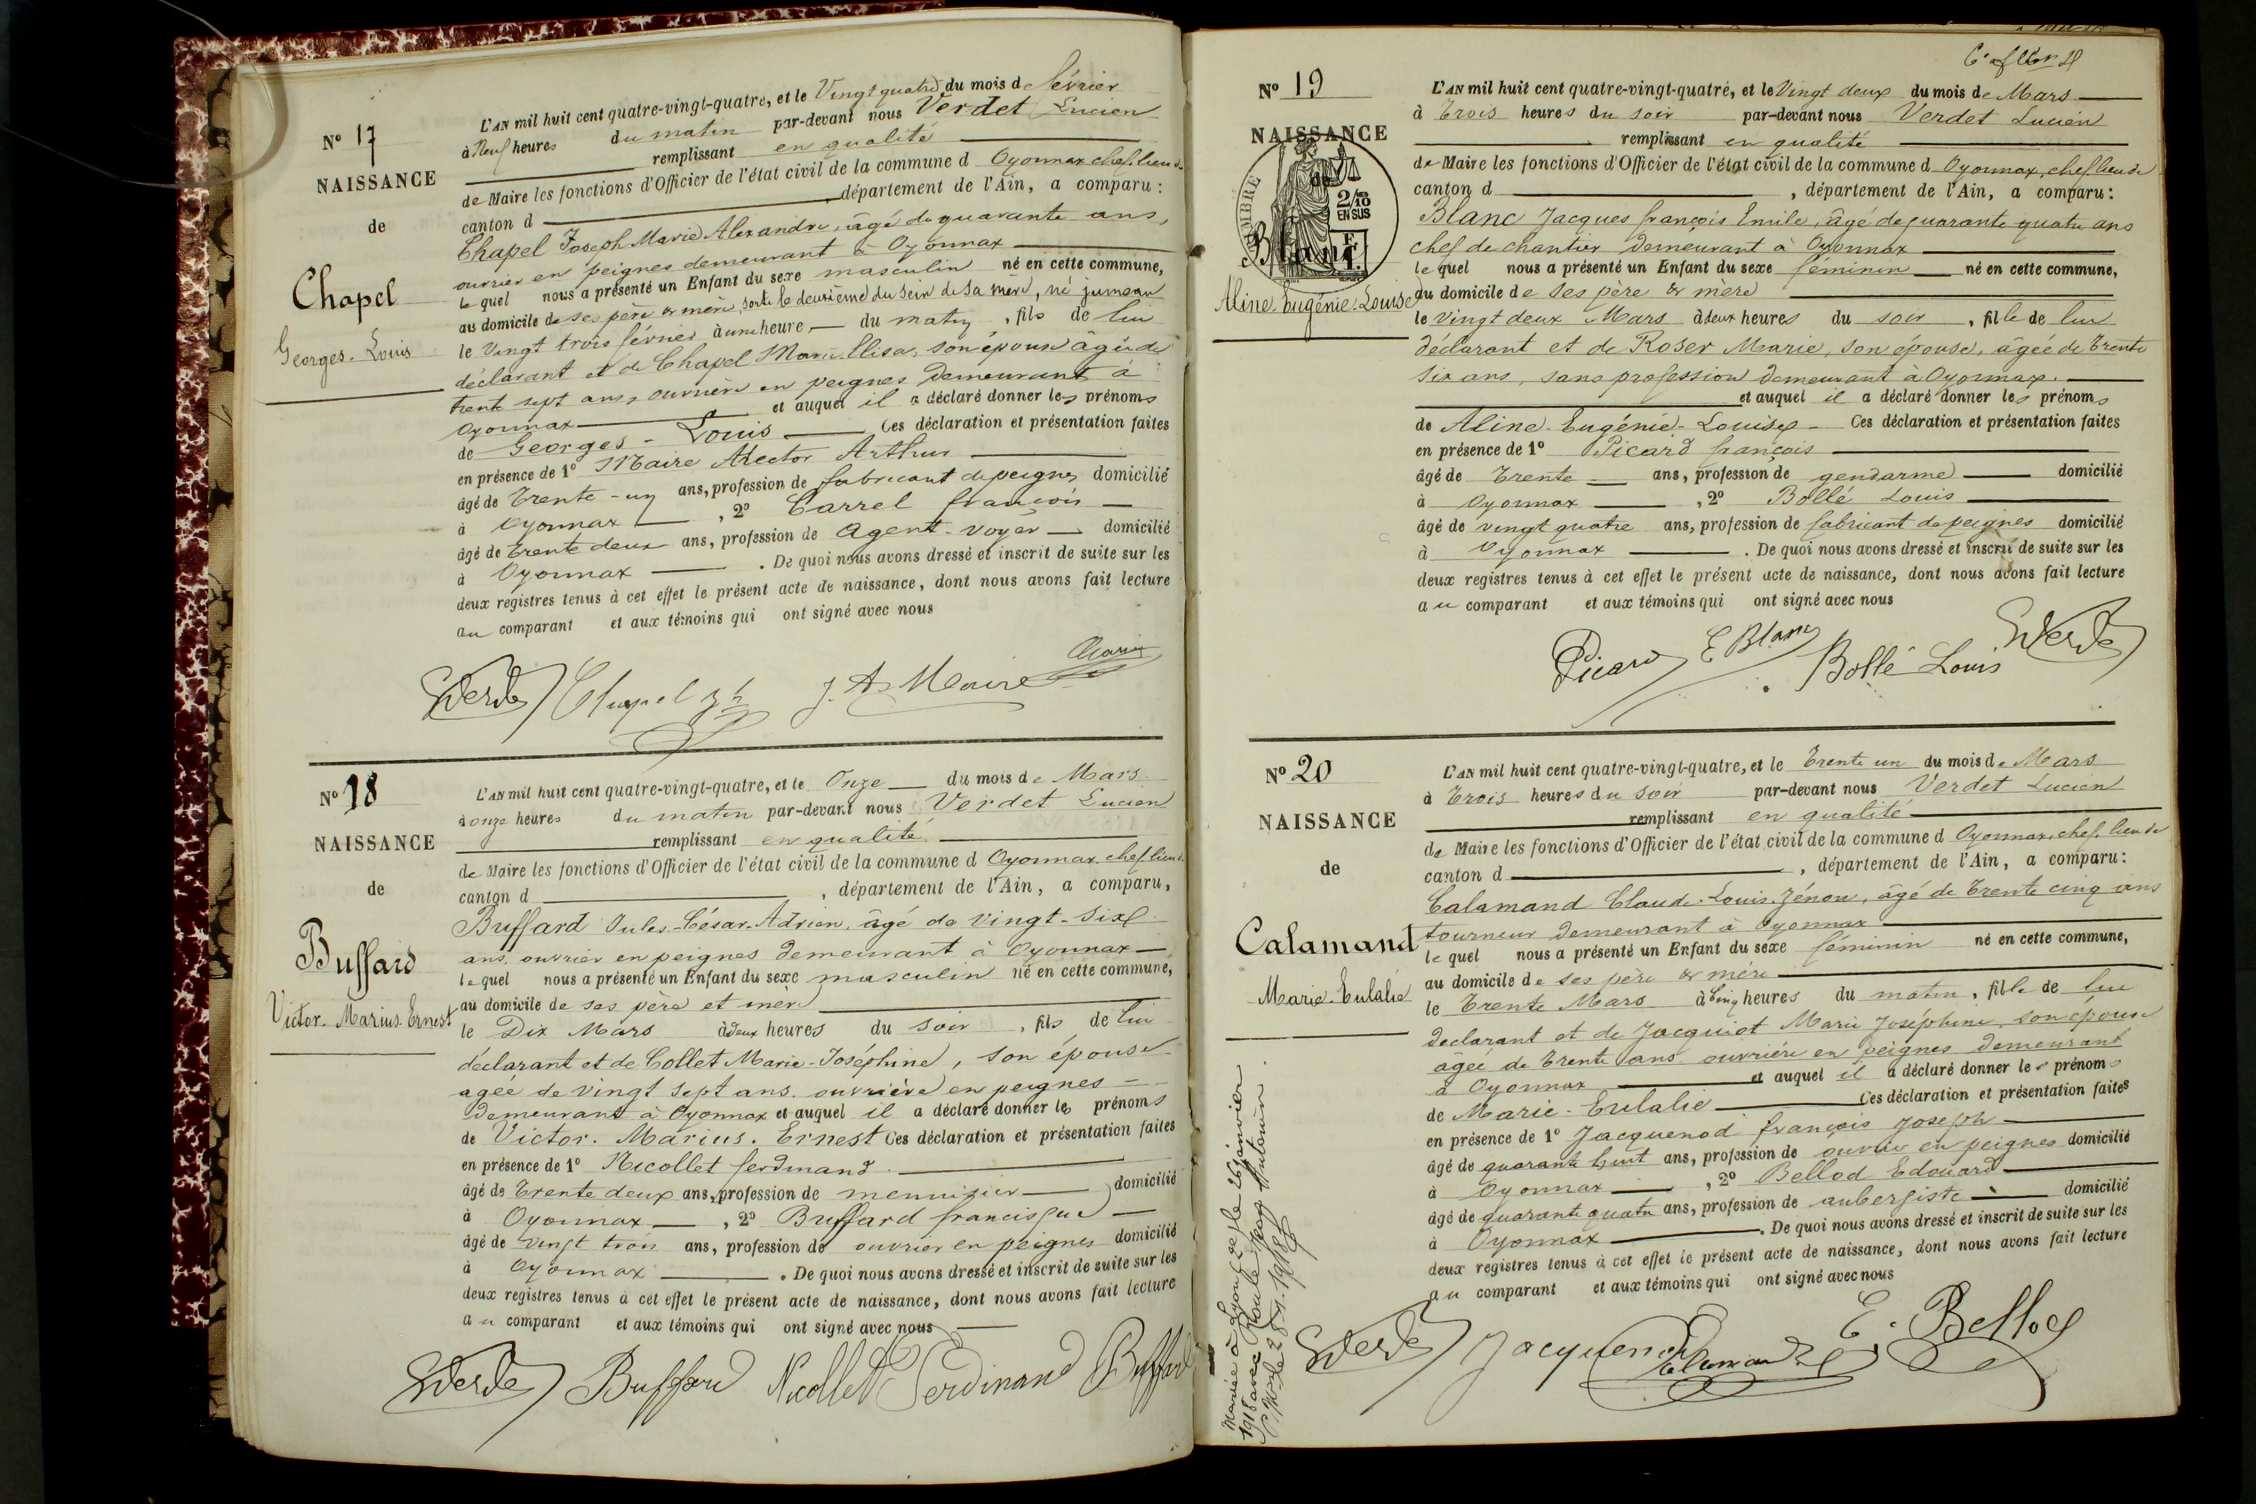 L'AN mil huit cent quatre-vingt-quatre, et le Vingt quatre du mois de février
N° 17
à Neuf heures du matin par-devant nous Verdet Lucien
remplissant en qualité
NAISSANCE
de Maire les fonctions d'Officier de l'état civil de la commune d Oyonnax chef lieu de
de
canton d , département de l'Ain, a comparu :
Chapel Joseph Marie Alexandre, âgé de quarante ans,
ouvrier en peignes demeurant à Oyonnax
Chapel
le quel nous a présenté un Enfant du sexe masculin né en cette commune,
au domicile de ses père & mère, sorti le deuxième du sein de sa mère, né jumeau
Georges-Louis
le Vingt trois février à une heure du matin, fils de lui
déclarant et de Chapel Marie Elisa, son épouse âgée de
trente sept ans, ouvrière en peignes demeurant à
Oyonnax et auquel il a déclaré donner les prénoms
de Georges-Louis Ces déclaration et présentation faites
en présence de 1° Maire Hector Arthur
âgé de Trente-un ans, profession de fabricant de peignes domicilié
à Oyonnax , 2° Carrel françois
âgé de Trente deux ans, profession de Agent-voyer domicilié
à Oyonnax . De quoi nous avons dressé et inscrit de suite sur les
deux registres tenus à cet effet le présent acte de naissance, dont nous avons fait lecture
au comparant et aux témoins qui ont signé avec nous
Verdet Chapel J. A. Maire
N° 18
L'AN mil huit cent quatre-vingt-quatre, et le Onze du mois de Mars
à onze heures du matin par-devant nous Verdet Lucien
NAISSANCE
remplissant en qualité
de Maire les fonctions d'Officier de l'état civil de la commune d Oyonnax, chef lieu de
de
canton d , département de l'Ain, a comparu,
Buffard Jules-César-Adrien, âgé de vingt-six
Buffard
ans, ouvrier en peignes demeurant à Oyonnax
le quel nous a présenté un Enfant du sexe masculin né en cette commune,
Victor-Marius-Ernest
au domicile de ses père et mère
le Dix Mars à deux heures du soir, fils de lui
déclarant et de Collet Marie-Joséphine, son épouse
agée de vingt sept ans, ouvrière en peignes
demeurant à Oyonnax et auquel il a déclaré donner les prénoms
de Victor. Marius. Ernest Ces déclaration et présentation faites
en présence de 1° Nicollet ferdinand
âgé de Trente deux ans, profession de menuisier domicilié
à Oyonnax , 2° Buffard francisque
âgé de vingt trois ans, profession de ouvrier en peignes domicilié
à Oyonnax . De quoi nous avons dressé et inscrit de suite sur les
deux registres tenus à cet effet le présent acte de naissance, dont nous avons fait lecture
au comparant et aux témoins qui ont signé avec nous
Verdet Buffard Nicollet Ferdinand Buffard
N° 19
L'AN mil huit cent quatre-vingt-quatre, et le Vingt deux du mois de Mars
à Trois heures du soir par-devant nous Verdet Lucien
NAISSANCE
remplissant en qualité
de Maire les fonctions d'Officier de l'état civil de la commune d Oyonnax, chef lieu de
de
2/10 EN SUS
canton d , département de l'Ain, a comparu :
Blanc Jacques françois Emile, âgé de quarante quatre ans
Blanc
chef de chantier demeurant à Oyonnax
le quel nous a présenté un Enfant du sexe féminin né en cette commune,
Aline-Eugénie-Louise
au domicile de ses père & mère
le vingt deux Mars à deux heures du soir, fille de lui
déclarant et de Roser Marie, son épouse, âgée de Trente
six ans, sans profession demeurant à Oyonnax.
et auquel il a déclaré donner les prénoms
de Aline-Eugénie-Louise Ces déclaration et présentation faites
en présence de 1° Picard françois
âgé de Trente ans, profession de gendarme domicilié
à Oyonnax , 2° Bollé Louis
âgé de vingt quatre ans, profession de fabricant de peignes domicilié
à Oyonnax . De quoi nous avons dressé et inscrit de suite sur les
deux registres tenus à cet effet le présent acte de naissance, dont nous avons fait lecture
au comparant et aux témoins qui ont signé avec nous
Picard E Blanc Bollé Louis Verdet
N° 20
L'AN mil huit cent quatre-vingt-quatre, et le Trente un du mois de Mars
à Trois heures du soir par-devant nous Verdet Lucien
NAISSANCE
remplissant en qualité
de Maire les fonctions d'Officier de l'état civil de la commune d Oyonnax, chef lieu de
de
canton d , département de l'Ain, a comparu :
Calamand Claude-Louis-Zénon, âgé de Trente cinq ans
Calamand
tourneur demeurant à Oyonnax
le quel nous a présenté un Enfant du sexe féminin né en cette commune,
Marie-Eulalie
au domicile de ses père & mère
le Trente Mars à Cinq heures du matin, fille de lui
déclarant et de Jacquiot Marie Joséphine, son épouse
âgée de Trente ans ouvrière en peignes demeurant
à Oyonnax et auquel il a déclaré donner les prénoms
de Marie-Eulalie Ces déclaration et présentation faites
en présence de 1° Jacquenod françois Joseph
âgé de quarante huit ans, profession de ouvrier en peignes domicilié
à Oyonnax , 2° Bellod Edouard
âgé de quarante quatre ans, profession de aubergiste domicilié
à Oyonnax . De quoi nous avons dressé et inscrit de suite sur les
deux registres tenus à cet effet le présent acte de naissance, dont nous avons fait lecture
au comparant et aux témoins qui ont signé avec nous
Verdet Jacquenod Calamand E. Bellod
Mariée à Lyon le janvier
1918 avec Jean Antonin